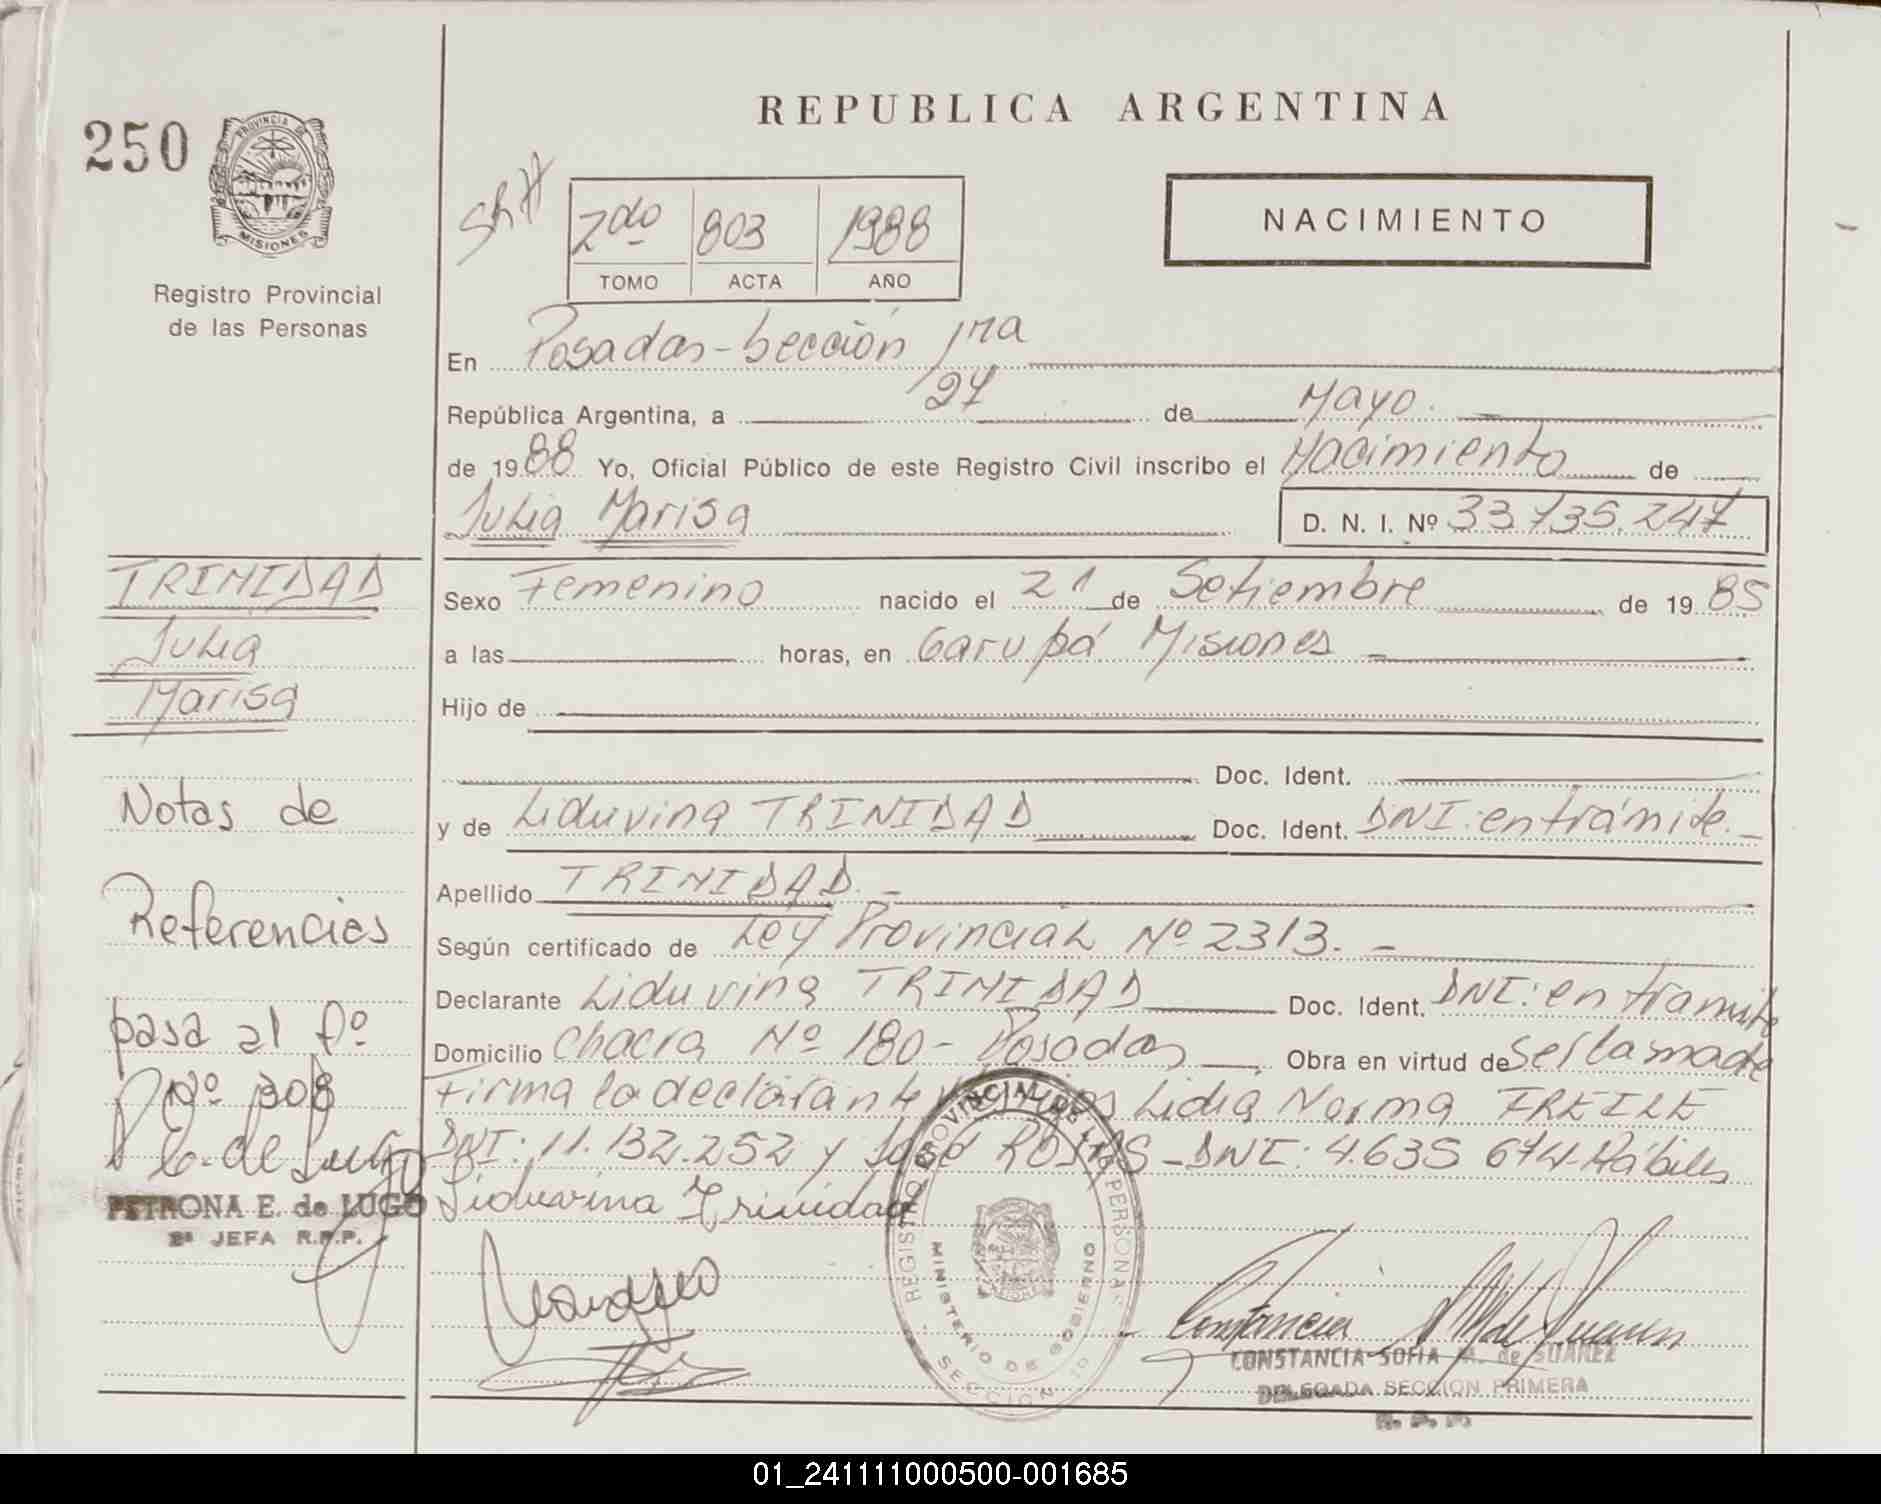 250
PROVINCIA DE
MISIONES
Registro Provincial
de las Personas
REPUBLICA ARGENTINA
NACIMIENTO
2do 803 1988
TOMO ACTA AÑO
En Posadas - Sección 1ra
República Argentina, a 27 de Mayo.
de 1988 Yo, Oficial Público de este Registro Civil inscribo el Nacimiento de
Julia Marisa D. N. I. Nº 33.735.247
Sexo Femenino nacido el 21 de Setiembre de 1985
a las horas, en Garupá Misiones
Hijo de
Doc. Ident.
y de Liduvina TRINIDAD Doc. Ident. DNI: en trámite.
Apellido TRINIDAD.
Según certificado de Ley Provincial Nº 2313.
Declarante Liduvina TRINIDAD Doc. Ident. DNI: en tramite
Domicilio Chacra Nº 180 - Posadas Obra en virtud de ser la madre
Firma la declarante Lidia Norma FREILE
DNI: 11.132.252 y José ROJAS - DNI: 4.635 674. Hábiles
Liduvina Trinidad
TRINIDAD
Julia
Marisa
Notas de
Referencias
pasa al fº
Nº 308
P E. de Lugo
PETRONA E. de LUGO
JEFA R.P.P.
REGISTRO PROVINCIAL DE LAS PERSONAS
MINISTERIO DE GOBIERNO
SECCION
CONSTANCIA SOFIA M. de SUAREZ
DELEGADA SECCION PRIMERA
R. P. P.
01_241111000500-001685